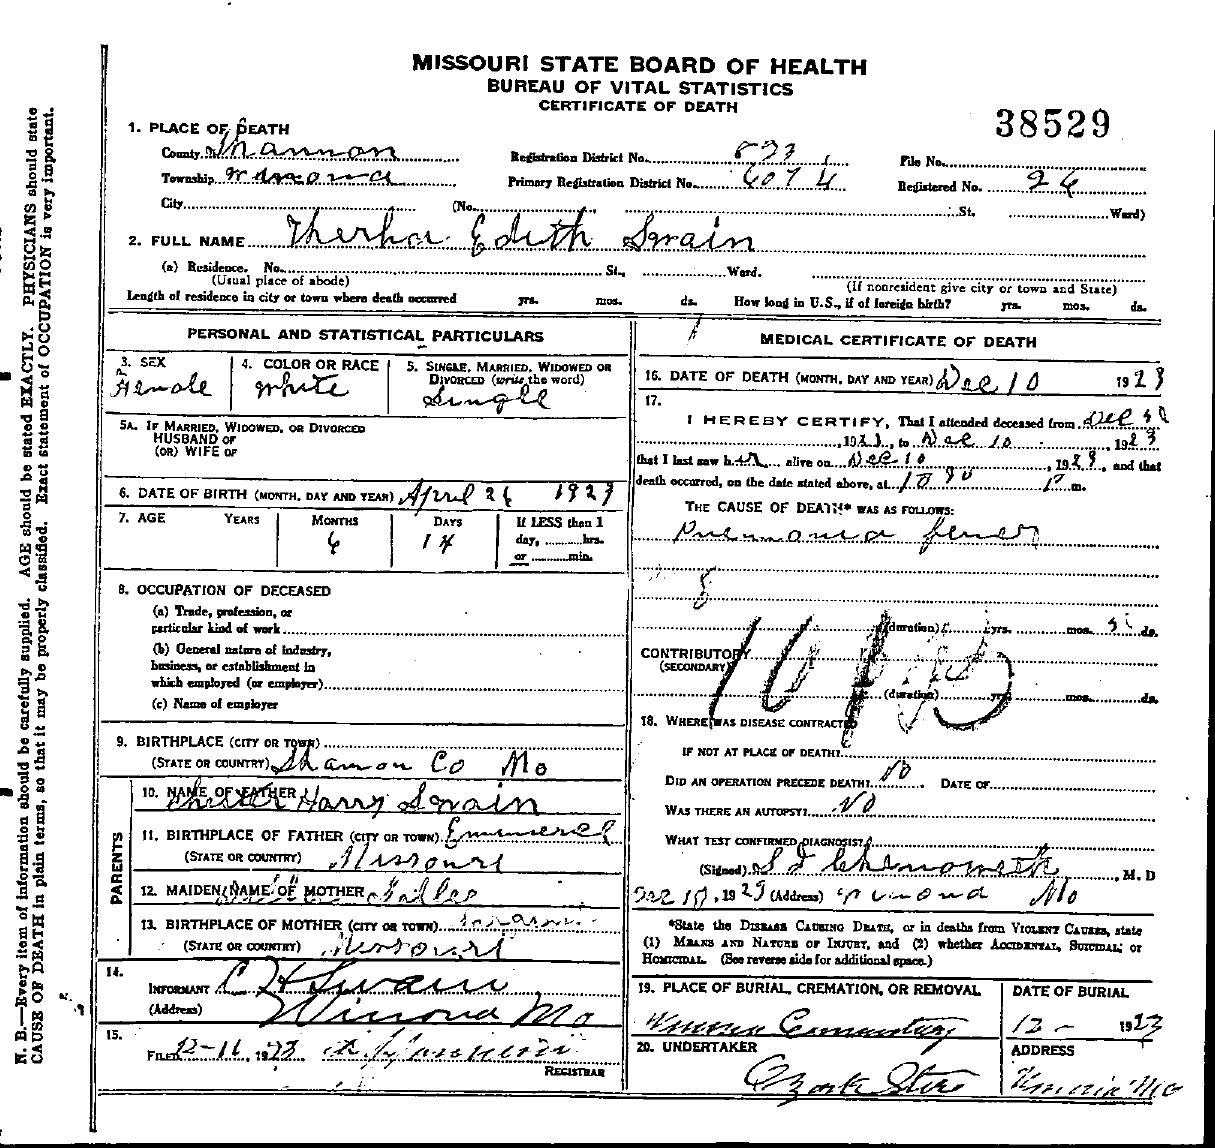 MISSOURI STATE BOARD OF HEALTH
BUREAU OF VITAL STATISTICS
CERTIFICATE OF DEATH
38529
1. PLACE OF DEATH
County Shannon Registration District No. File No.
Township Winona Primary Registration District No. 6074 Registered No. 26
City (No. St. Ward)
2. FULL NAME Edith Swain
(a) Residence. No. St., Ward.
(Usual place of abode) (If nonresident give city or town and State)
Length of residence in city or town where death occurred yrs. mos. ds. How long in U.S., if of foreign birth? yrs. mos. ds.
PERSONAL AND STATISTICAL PARTICULARS
3. SEX
Female
4. COLOR OR RACE
White
5. SINGLE, MARRIED, WIDOWED OR DIVORCED (write the word)
Single
5A. IF MARRIED, WIDOWED, OR DIVORCED
HUSBAND OF
(OR) WIFE OF
6. DATE OF BIRTH (MONTH, DAY AND YEAR) April 26 1923
7. AGE YEARS MONTHS DAYS If LESS than 1
6 14 day, hrs.
or min.
8. OCCUPATION OF DECEASED
(a) Trade, profession, or
particular kind of work
(b) General nature of industry,
business, or establishment in
which employed (or employer)
(c) Name of employer
9. BIRTHPLACE (CITY OR TOWN)
(STATE OR COUNTRY) Shannon Co Mo
PARENTS
10. NAME OF FATHER Harry Swain
11. BIRTHPLACE OF FATHER (CITY OR TOWN)
(STATE OR COUNTRY) Missouri
12. MAIDEN NAME OF MOTHER
13. BIRTHPLACE OF MOTHER (CITY OR TOWN)
(STATE OR COUNTRY) Missouri
14.
INFORMANT C H Swain
(Address) Winona Mo
15.
FILED 12-11, 1923
REGISTRAR
MEDICAL CERTIFICATE OF DEATH
16. DATE OF DEATH (MONTH, DAY AND YEAR) Dec 10 1923
17.
I HEREBY CERTIFY, That I attended deceased from Dec
, 1923, to Dec 10, 1923
that I last saw her alive on Dec 10, 1923, and that
death occurred, on the date stated above, at 10 30 P m.
THE CAUSE OF DEATH* WAS AS FOLLOWS:
Pneumonia fever
(duration) yrs. mos. ds.
CONTRIBUTORY
(SECONDARY)
(duration) yrs. mos. ds.
18. WHERE WAS DISEASE CONTRACTED
IF NOT AT PLACE OF DEATH?
DID AN OPERATION PRECEDE DEATH? No DATE OF
WAS THERE AN AUTOPSY? No
WHAT TEST CONFIRMED DIAGNOSIS?
(Signed) Chenoweth, M. D
Dec 10, 1923 (Address) Winona Mo
*State the DISEASE CAUSING DEATH, or in deaths from VIOLENT CAUSES, state
(1) MEANS AND NATURE OF INJURY, and (2) whether ACCIDENTAL, SUICIDAL, or
HOMICIDAL. (See reverse side for additional space.)
19. PLACE OF BURIAL, CREMATION, OR REMOVAL DATE OF BURIAL
Winona Cemetery 12- 1923
20. UNDERTAKER ADDRESS
Ozark Store Winona Mo
N. B.—Every item of information should be carefully supplied. AGE should be stated EXACTLY. PHYSICIANS should state
CAUSE OF DEATH in plain terms, so that it may be properly classified. Exact statement of OCCUPATION is very important.